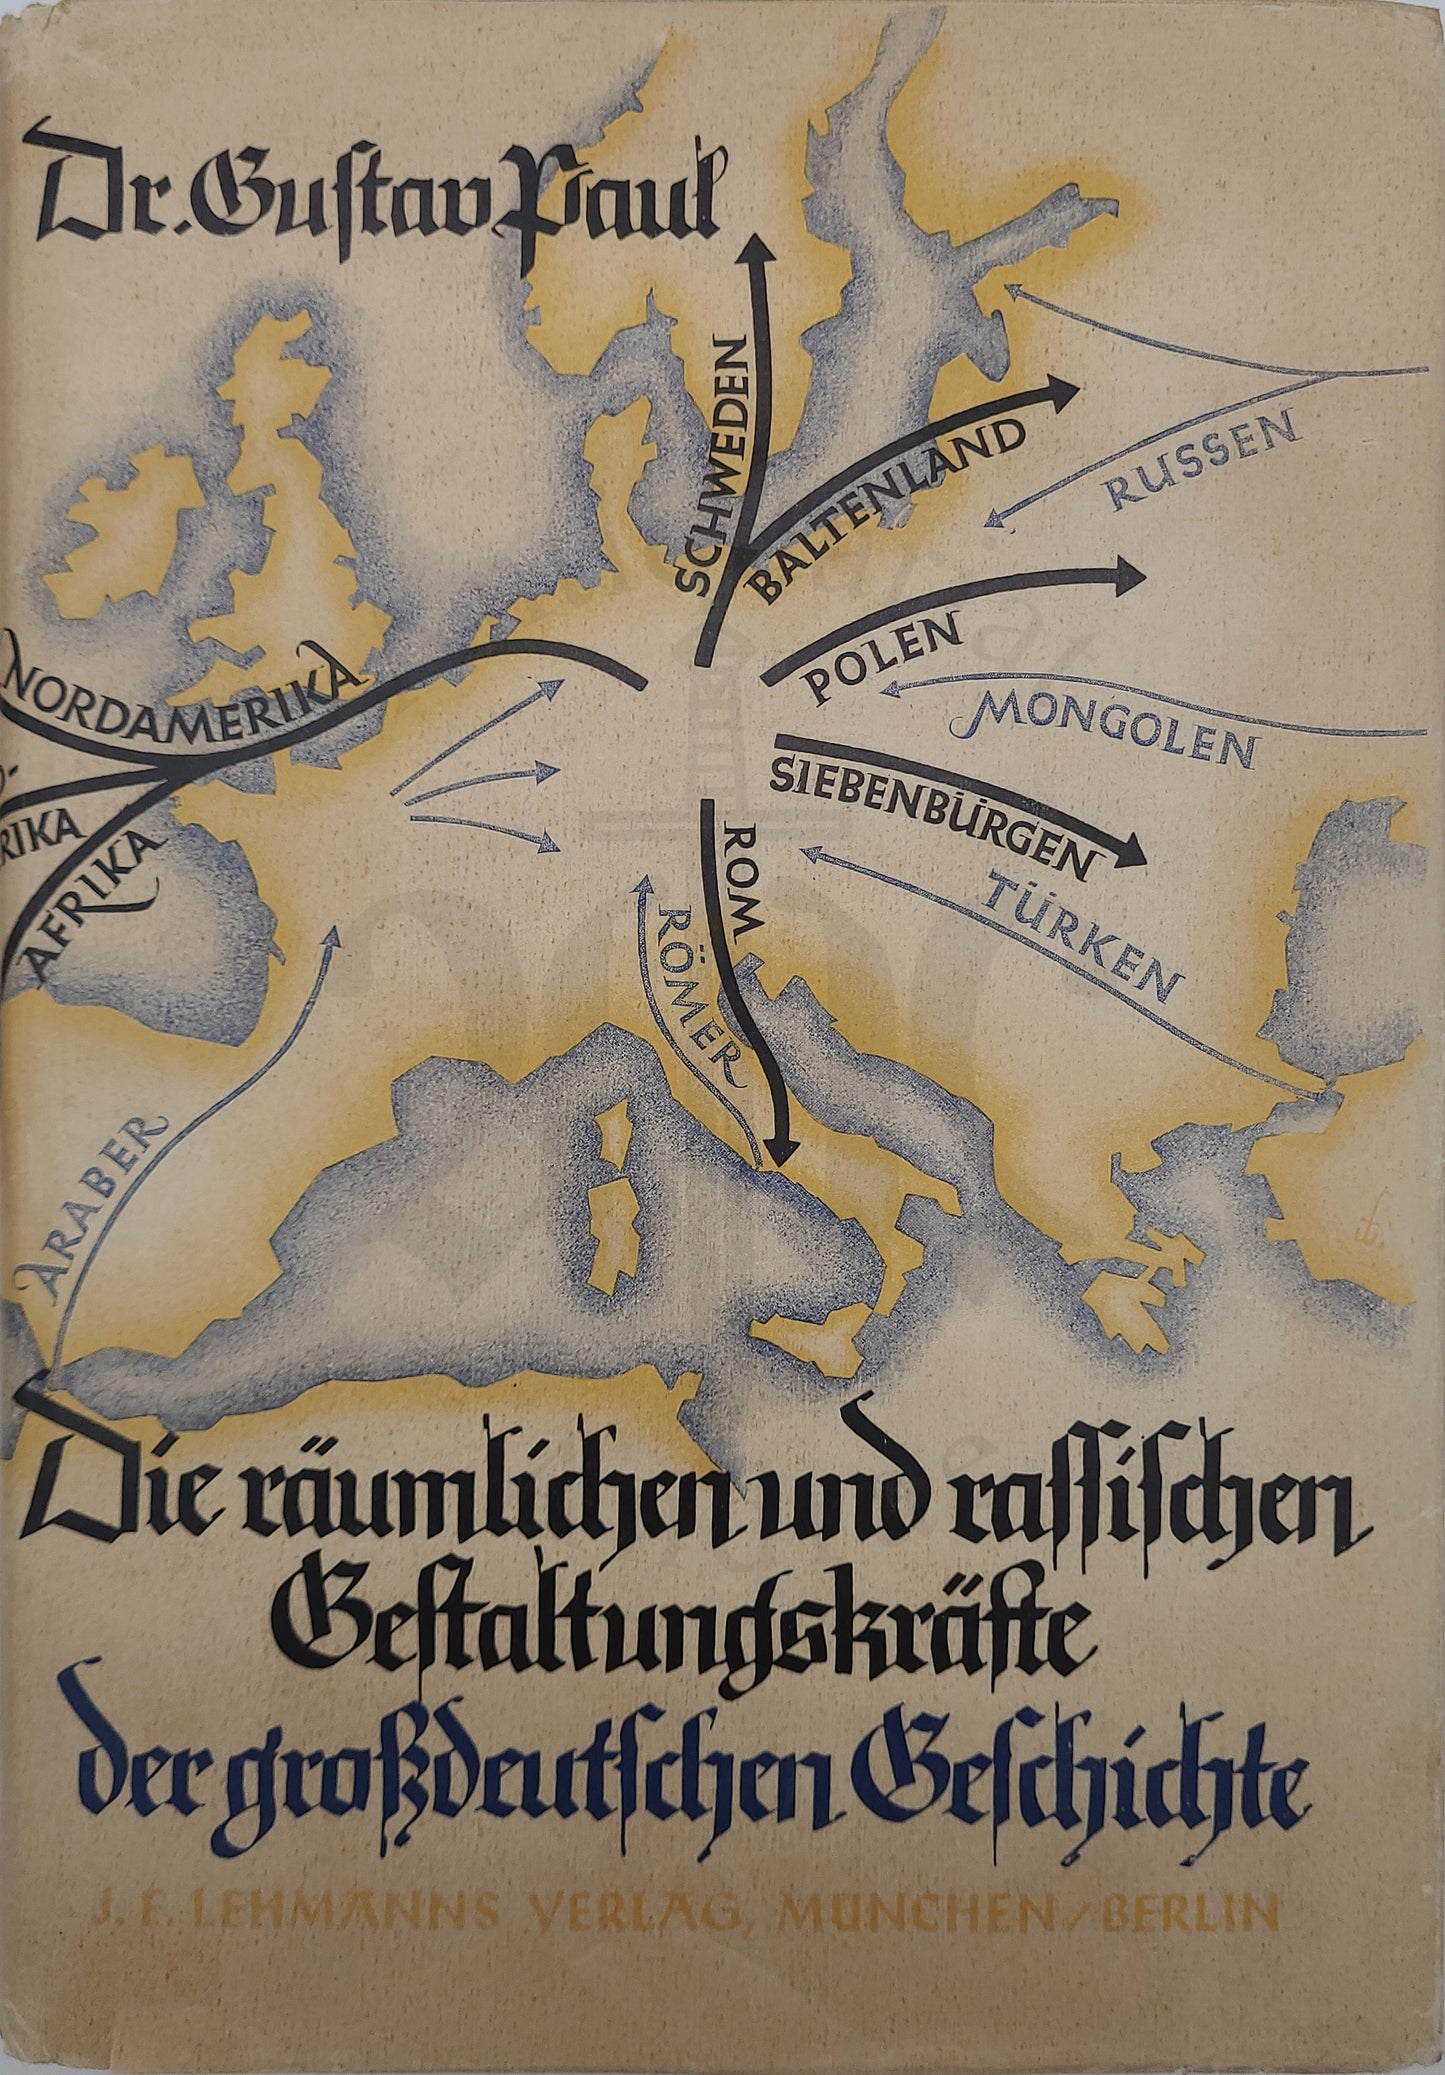 Dr. Gustav Paul
SCHWEDEN
BALTENLAND
RUSSEN
POLEN
NORDAMERIKA
MONGOLEN
SIEBENBÜRGEN
RIKA
AFRIKA
ROM
TÜRKEN
RÖMER
ARABER
Die räumlichen und rassischen
Gestaltungskräfte
der großdeutschen Geschichte
J. F. LEHMANNS VERLAG, MÜNCHEN / BERLIN